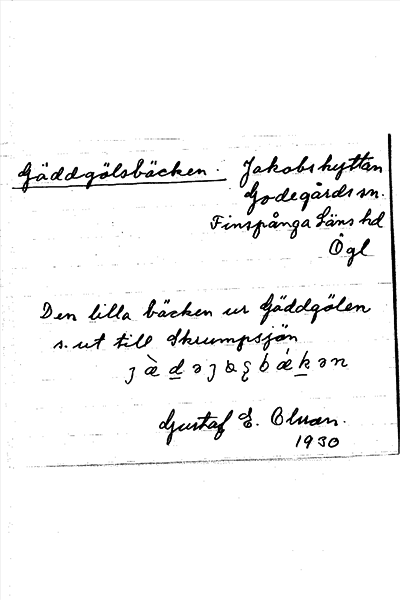 Gäddgölsbäcken. Jakobshyttan
Godegårds sn.
Finspånga Läns hd
Ögl
Den lilla bäcken ur Gäddgölen
s. ut till Skrumpsjön
Gustaf E. Olsson.
1930